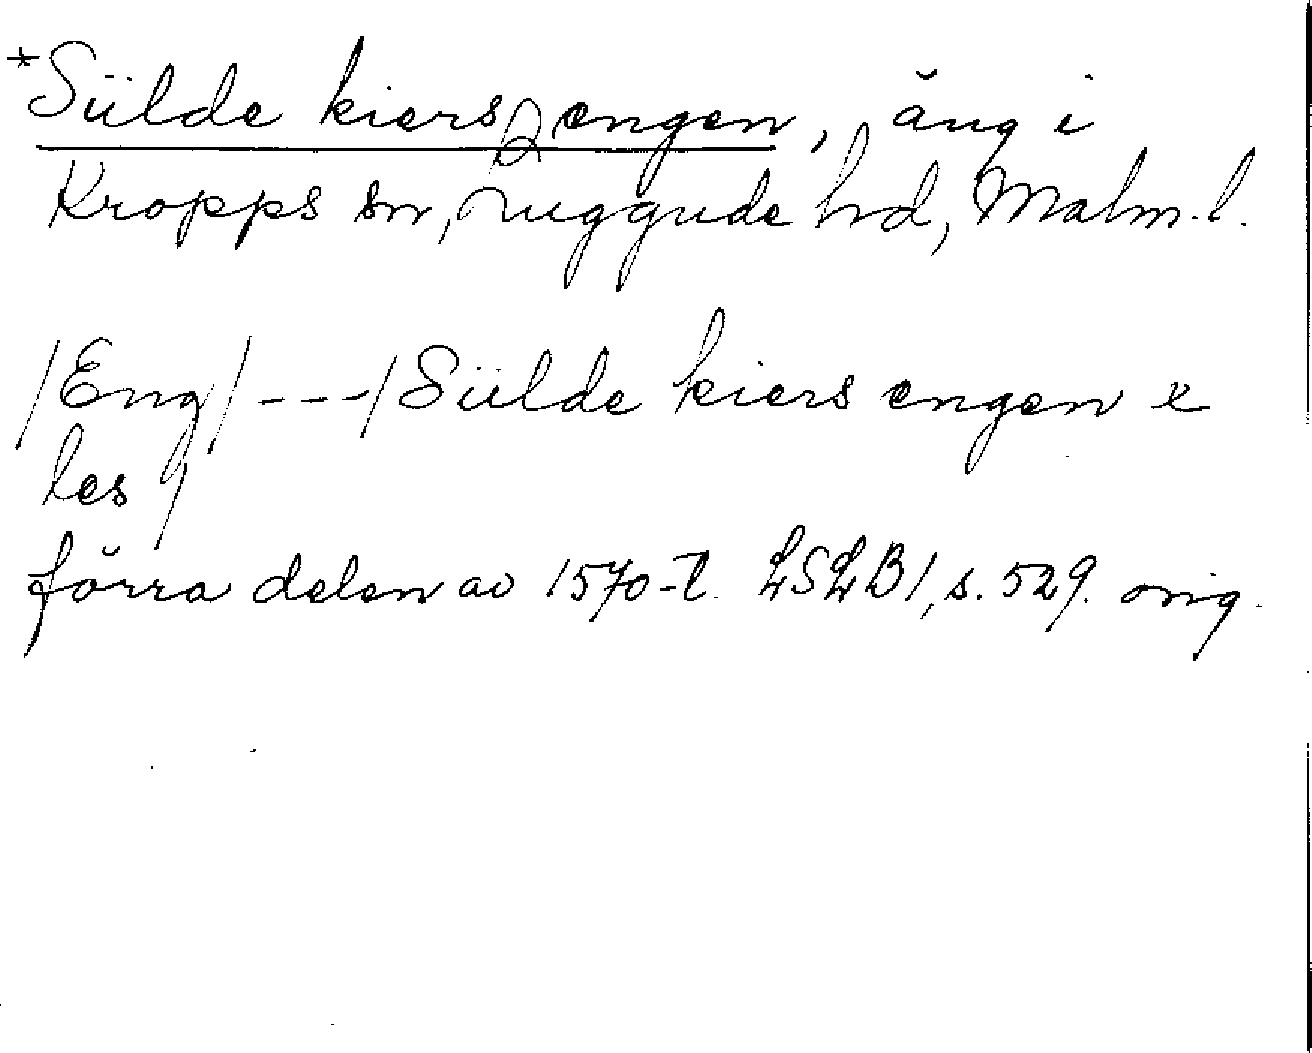 *Siilde kiers engen, äng i
Kropps sn, Luggude hd, Malm. l.
/Eng/ - - - / Siilde kiers engen x
les /
förra delen av 1570-t. LSLB1, s. 529. orig.